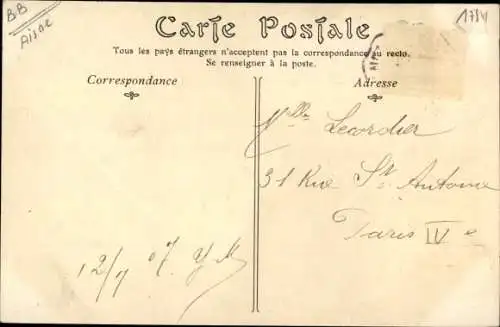 BB
Aisne
1784
Carte Postale
Tous les pays étrangers n'acceptent pas la correspondance au recto.
Se renseigner à la poste.
Correspondance
Adresse
Mlle Lecordier
31 Rue St Antoine
Paris IVe
12/7 07. YM